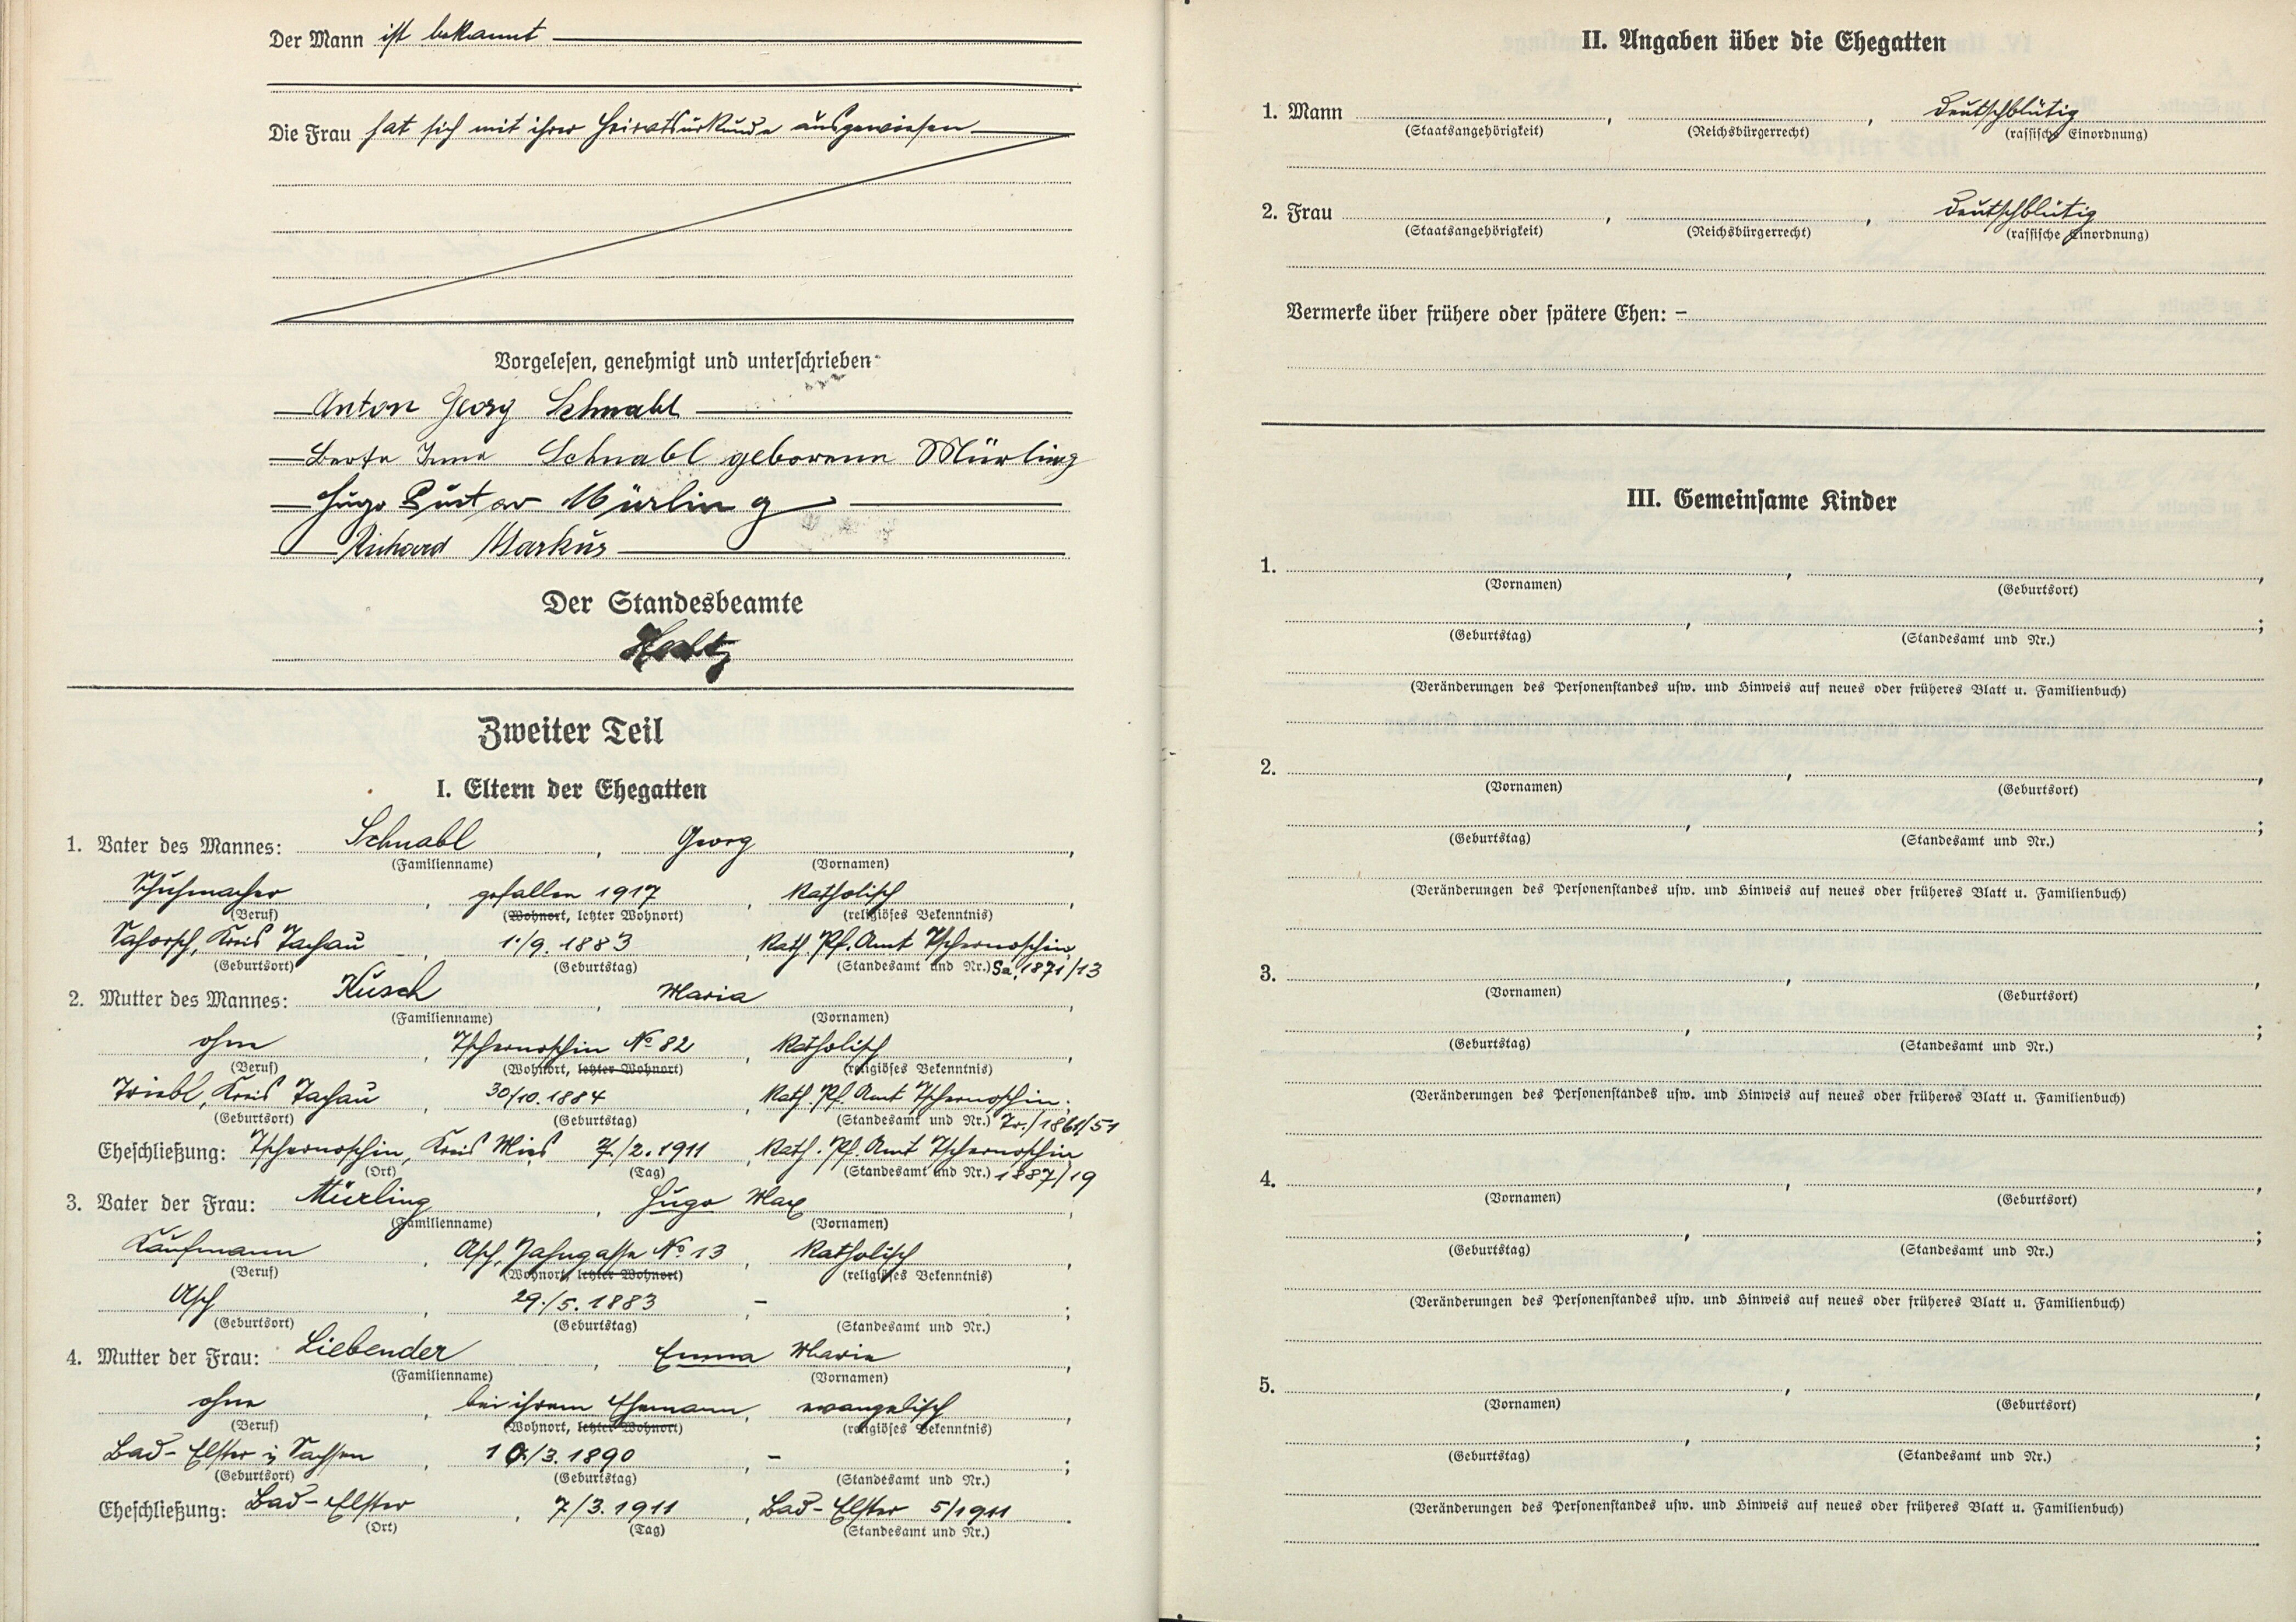 Der Mann ist bekannt
Die Frau hat sich mit ihrer Heiratsurkunde ausgewiesen
Vorgelesen, genehmigt und unterschrieben
Anton Georg Schnabl
Berta Irma Schnabl geborenen Mürling
Hugo Gustav Mürling
Richard Markus
Der Standesbeamte
Zweiter Teil
I. Eltern der Ehegatten
1. Vater des Mannes: Schnabl, Georg,
(Familienname) (Vornamen)
Schuhmacher, gefallen 1917, katholisch,
(Beruf) (Wohnort, letzter Wohnort) (religiöses Bekenntnis)
Sahorsch, Kreis Tachau, 1./9. 1883, Kath. Pf. Amt Tschernoschin,
(Geburtsort) (Geburtstag) (Standesamt und Nr.) Sa. 1871/13
2. Mutter des Mannes: Kusch, Maria,
(Familienname) (Vornamen)
ohne, Tschernoschin No 82, katholisch,
(Beruf) (Wohnort, letzter Wohnort) (religiöses Bekenntnis)
Triebl, Kreis Tachau, 30/10. 1884, Kath. Pf. Amt Tschernoschin;
(Geburtsort) (Geburtstag) (Standesamt und Nr.) Tr./1861/51
Eheschließung: Tschernoschin, Kreis Mies 7./2. 1911, Kath. Pf. Amt Tschernoschin
(Ort) (Tag) (Standesamt und Nr.) 1887/19
3. Vater der Frau: Mürling, Hugo Max,
(Familienname) (Vornamen)
Kaufmann, Asch, Jahngasse No 13, katholisch,
(Beruf) (Wohnort, letzter Wohnort) (religiöses Bekenntnis)
Asch, 29./5. 1883, - ;
(Geburtsort) (Geburtstag) (Standesamt und Nr.)
4. Mutter der Frau: Liebender, Emma Marie,
(Familienname) (Vornamen)
ohne, bei ihrem Ehemann, evangelisch,
(Beruf) (Wohnort, letzter Wohnort) (religiöses Bekenntnis)
Bad-Elster i/ Sachsen, 10./3. 1890, - ;
(Geburtsort) (Geburtstag) (Standesamt und Nr.)
Eheschließung: Bad-Elster, 7/3. 1911, Bad-Elster 5/1911.
(Ort) (Tag) (Standesamt und Nr.)
II. Angaben über die Ehegatten
1. Mann , , deutschblütig
(Staatsangehörigkeit) (Reichsbürgerrecht) (rassische Einordnung)
2. Frau , , deutschblütig
(Staatsangehörigkeit) (Reichsbürgerrecht) (rassische Einordnung)
Vermerke über frühere oder spätere Ehen: -
III. Gemeinsame Kinder
1. , ,
(Vornamen) (Geburtsort)
, ;
(Geburtstag) (Standesamt und Nr.)
(Veränderungen des Personenstandes usw. und Hinweis auf neues oder früheres Blatt u. Familienbuch)
2. , ,
(Vornamen) (Geburtsort)
, ;
(Geburtstag) (Standesamt und Nr.)
(Veränderungen des Personenstandes usw. und Hinweis auf neues oder früheres Blatt u. Familienbuch)
3. , ,
(Vornamen) (Geburtsort)
, ;
(Geburtstag) (Standesamt und Nr.)
(Veränderungen des Personenstandes usw. und Hinweis auf neues oder früheres Blatt u. Familienbuch)
4. , ,
(Vornamen) (Geburtsort)
, ;
(Geburtstag) (Standesamt und Nr.)
(Veränderungen des Personenstandes usw. und Hinweis auf neues oder früheres Blatt u. Familienbuch)
5. , ,
(Vornamen) (Geburtsort)
, ;
(Geburtstag) (Standesamt und Nr.)
(Veränderungen des Personenstandes usw. und Hinweis auf neues oder früheres Blatt u. Familienbuch)